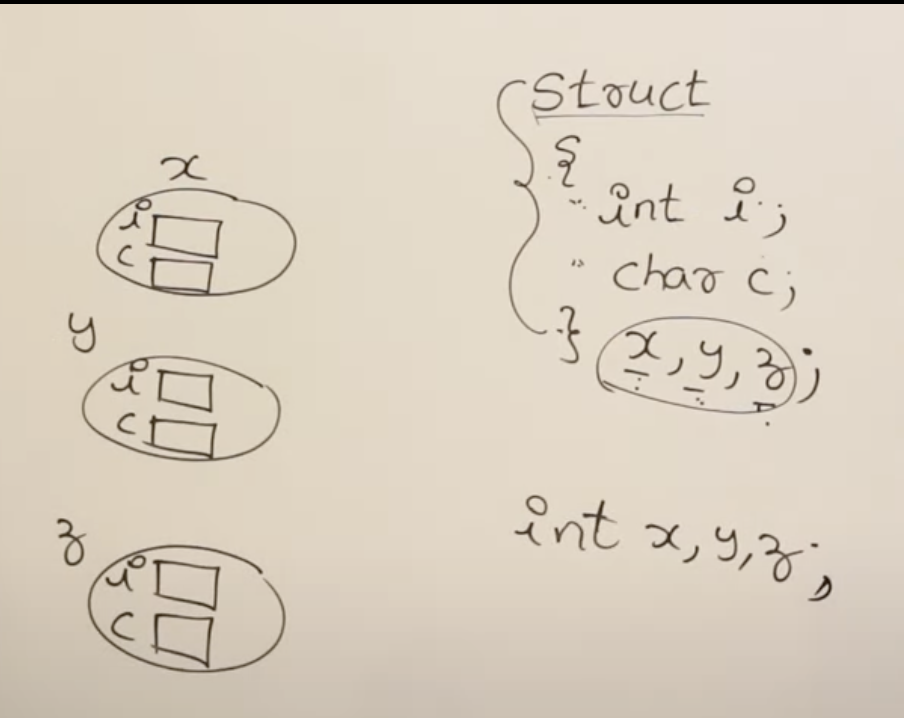 x
i
c
y
i
c
z
i
c
Struct
{
int i;
char c;
} x, y, z;
int x, y, z;